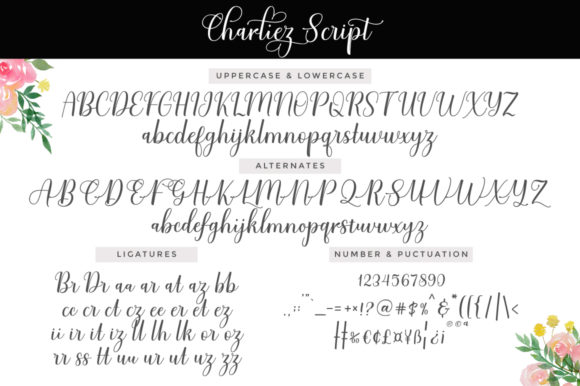 Charliez Script
UPPERCASE & LOWERCASE
ABCDEFGHIJKLMNOPQRSTUVWXYZ
abcdefghijklmnopqrstuvwxyz
ALTERNATES
ABCDEFGHIJKLMNOPQRSTUVWXYZ
abcdefghijklmnopqrstuvwxyz
LIGATURES
Br Dr aa ar at az bb
cc cr ct cz ee er et ez
ii ir it iz ll lh lk or oz
rr ss tt uu ur uz zz
NUMBER & PUCTUATION
1234567890
.,:;'"`_-=+×!?@#$%^&*(({/|\<
‰€¢£¤¥ß¦¿¡®©ª